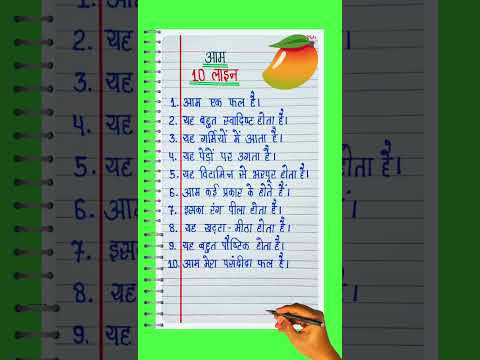 आम
10 लाइन
1. आम एक फल है।
2. यह बहुत स्वादिष्ट होता है।
3. यह गर्मियों में आता है।
4. यह पेड़ों पर उगता है।
5. यह विटामिन से भरपूर होता है।
6. आम कई प्रकार के होते हैं।
7. इसका रंग पीला होता है।
8. यह खट्टा-मीठा होता है।
9. यह बहुत पौष्टिक होता है।
10. आम मेरा पसंदीदा फल है।